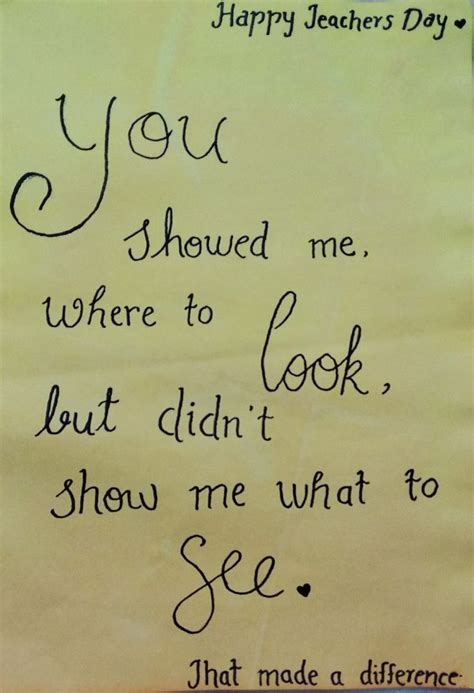 Happy Teachers Day ♥
You
showed me,
where to
look,
but didn't
show me what to
See. ♥
That made a difference.